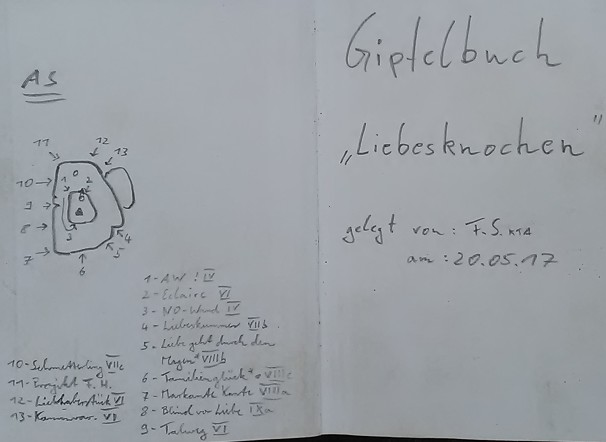 AS
11
12
13
10
9
8
7
6
5
4
3
1
0
2
1-AW ! IV
2-Eclaire VI
3-NO-Wand IV
4-Liebeskummer VIIb
5-Liebe geht durch den
Magen* VIIIb
6-Familienglück* VIIIc
7-Markante Kante VIIIa
8-Blind vor Liebe IXa
9-Talweg VI
10-Schmetterling VIIc
11-Projekt F. H.
12-Liebhaberstück VI
13-Kaminvar. VI
Gipfelbuch
„Liebesknochen”
gelegt von: F.S.
am: 20.05.17